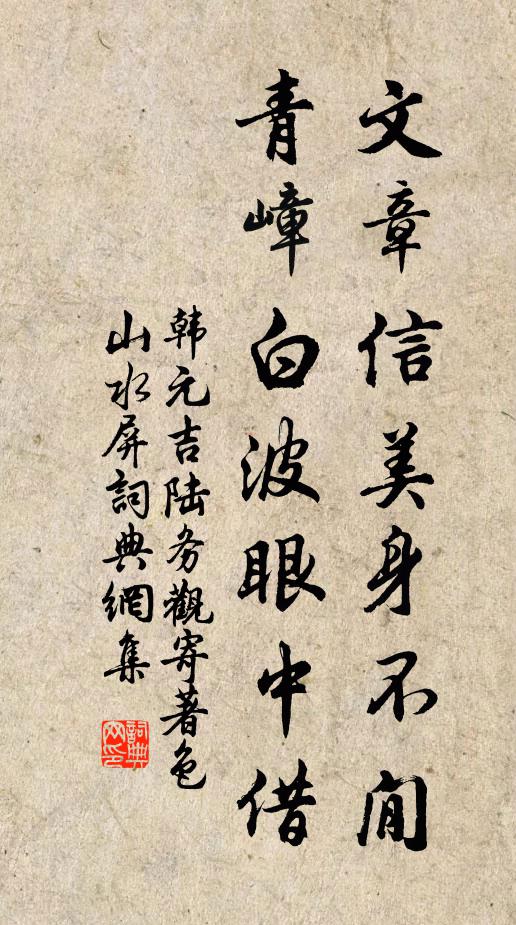 文章信美身不閒
青嶂白波眼中借
韩元吉陆务觀寄著色
山水屏詞典網集
詞典网印